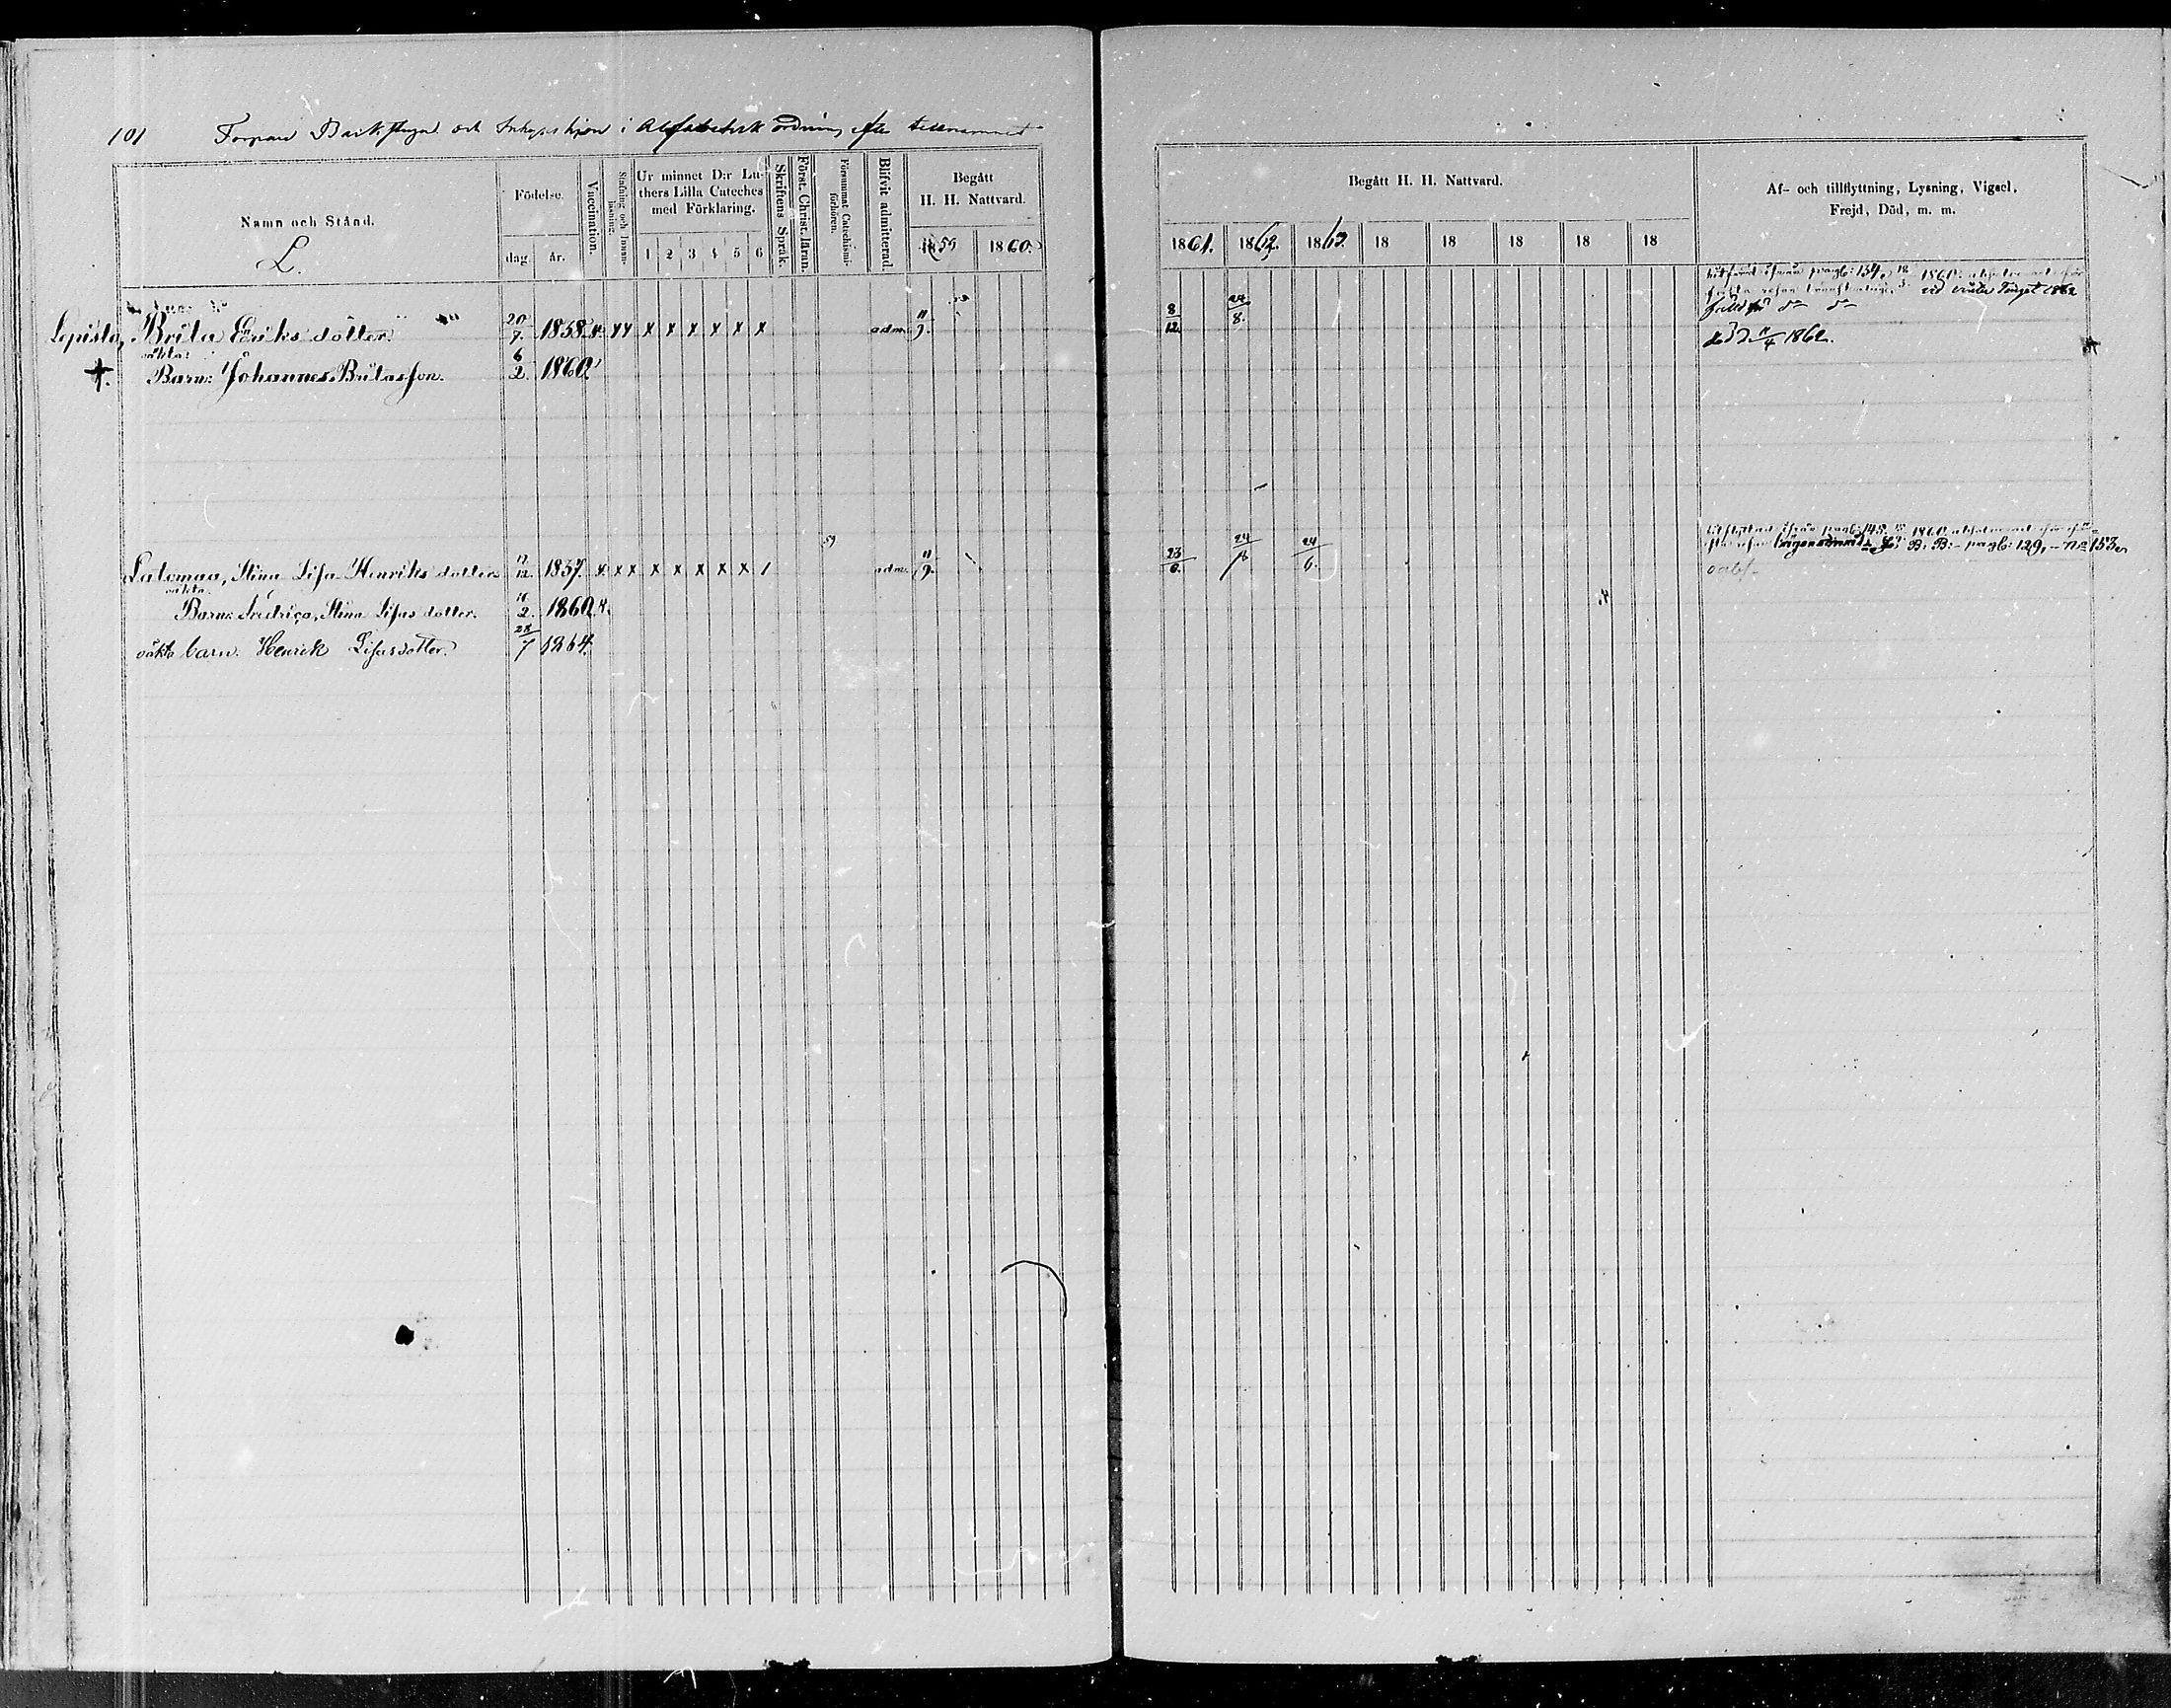 101 och i Alfabetisk ordning efter tillnamnet
Namn och Stånd.
L.
Födelse.
dag. år.
Vaccination.
Stafning och Innanläsning.
Ur minnet D:r Lu-
thers Lilla Cateches
med Förklaring.
1 2 3 4 5 6
Skriftens Språk.
Först. Christ. läran.
Försummat Catechismi-
förhören.
Blifvit admitterad.
Begått
H. H. Nattvard.
1859 1860.
Lepistö, Brita Eriks dotter. 20/7. 1838. x. x x x x x x x x adm. 11/9.
oäkta
†. Barn: Johannes Britasson. 6/2. 1860.
59
Latomaa, Stina Lisa Henriks dotter 17/12. 1837. x. x x x x x x x / adm. 11/9.
oäkta
Barn: Fredrica, Stina Lisas dotter. 2. 1860. x.
oäkta barn. Henrik Lisasdotter. 28/7 1864.
Begått H. H. Nattvard.
1861. 1862. 1863. 18 18 18 18 18
Af- och tillflyttning, Lysning, Vigsel,
Frejd, Död, m. m.
8/12. 24/8.
pagb: 134, 1860.
vid vinter Tinget 1862
död d. 11/4 1862.
23/6. 24/8 24/6.
pagb: 145, 1860.
B. B:- pagb: 129, - No 153.